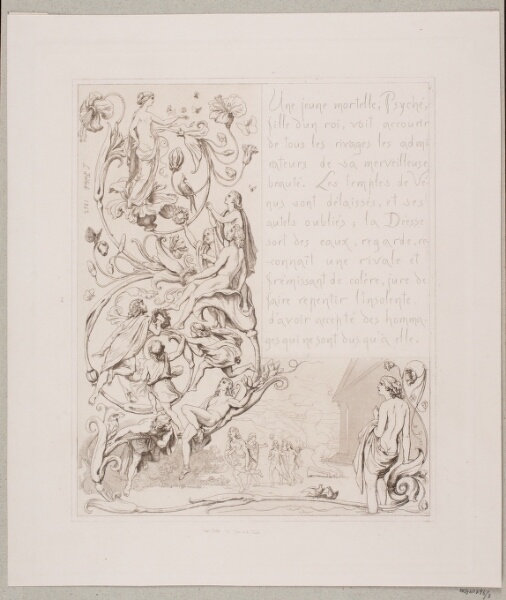 Une jeune mortelle, Psyché,
fille d'un roi, voit accourir
de tous les rivages les admi
rateurs de sa merveilleuse
beauté. Les temples de Vé
nus sont délaissés, et ses
autels oubliés; la Déesse
sort des eaux, regarde, re
connaît une rivale et
frémissant de colère, jure de
faire repentir l'insolente
d'avoir accepté des homma-
ges qui ne sont dus qu'à elle.